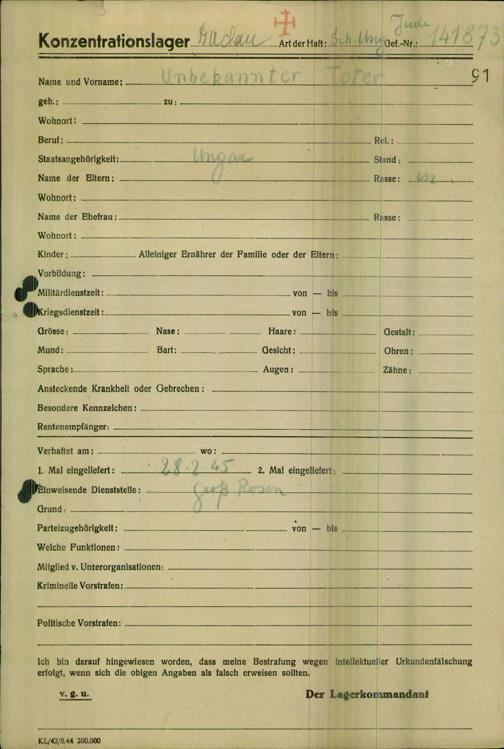 Konzentrationslager Dachau Art der Haft: Sch. Ung. Jude Gef.-Nr.: 141873
91
Name und Vorname: Unbekannter Toter
geb.: zu:
Wohnort:
Beruf: Rel.:
Staatsangehörigkeit: Ungar Stand:
Name der Eltern: Rasse:
Wohnort:
Name der Ehefrau: Rasse:
Wohnort:
Kinder: Alleiniger Ernährer der Familie oder der Eltern:
Vorbildung:
Militärdienstzeit: von — bis
Kriegsdienstzeit: von — bis
Grösse: Nase: Haare: Gestalt:
Mund: Bart: Gesicht: Ohren:
Sprache: Augen: Zähne:
Ansteckende Krankheit oder Gebrechen:
Besondere Kennzeichen:
Rentenempfänger:
Verhaftet am: wo:
1. Mal eingeliefert: 28.2.45 2. Mal eingeliefert:
Einweisende Dienststelle: Groß Rosen
Grund:
Parteizugehörigkeit: von — bis
Welche Funktionen:
Mitglied v. Unterorganisationen:
Kriminelle Vorstrafen:
Politische Vorstrafen:
Ich bin darauf hingewiesen worden, dass meine Bestrafung wegen intellektueller Urkundenfälschung
erfolgt, wenn sich die obigen Angaben als falsch erweisen sollten.
v. g. u. Der Lagerkommandant
KL/42/8.44 200.000